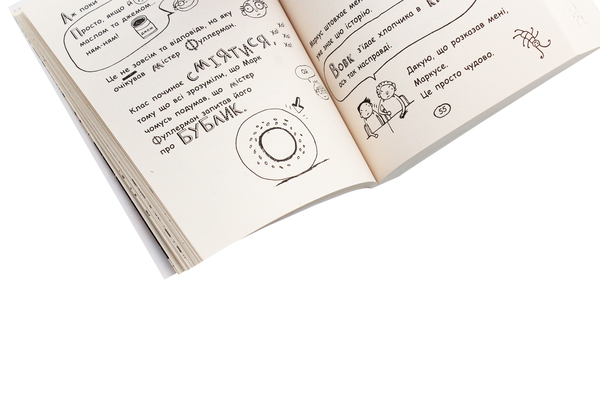 Аж поки
Просто, якщо в
маслом та джемом
ням-ням!
Це не зовсім та відповідь, на яку
очікував містер Фуллерман.
Клас починає СМІЯТИСЯ,
Ха
Ха
Ха
тому що всі зрозуміли, що Марк
чомусь подумав, що містер
Фуллерман запитав його
про БУБЛИК.
Маркус штовхає мене
уже знає цю історію.
Вовк з'їдає хлопчина в
ось так насправді.
Дякую, що розказав мені,
Маркусе.
Це просто чудово.
55